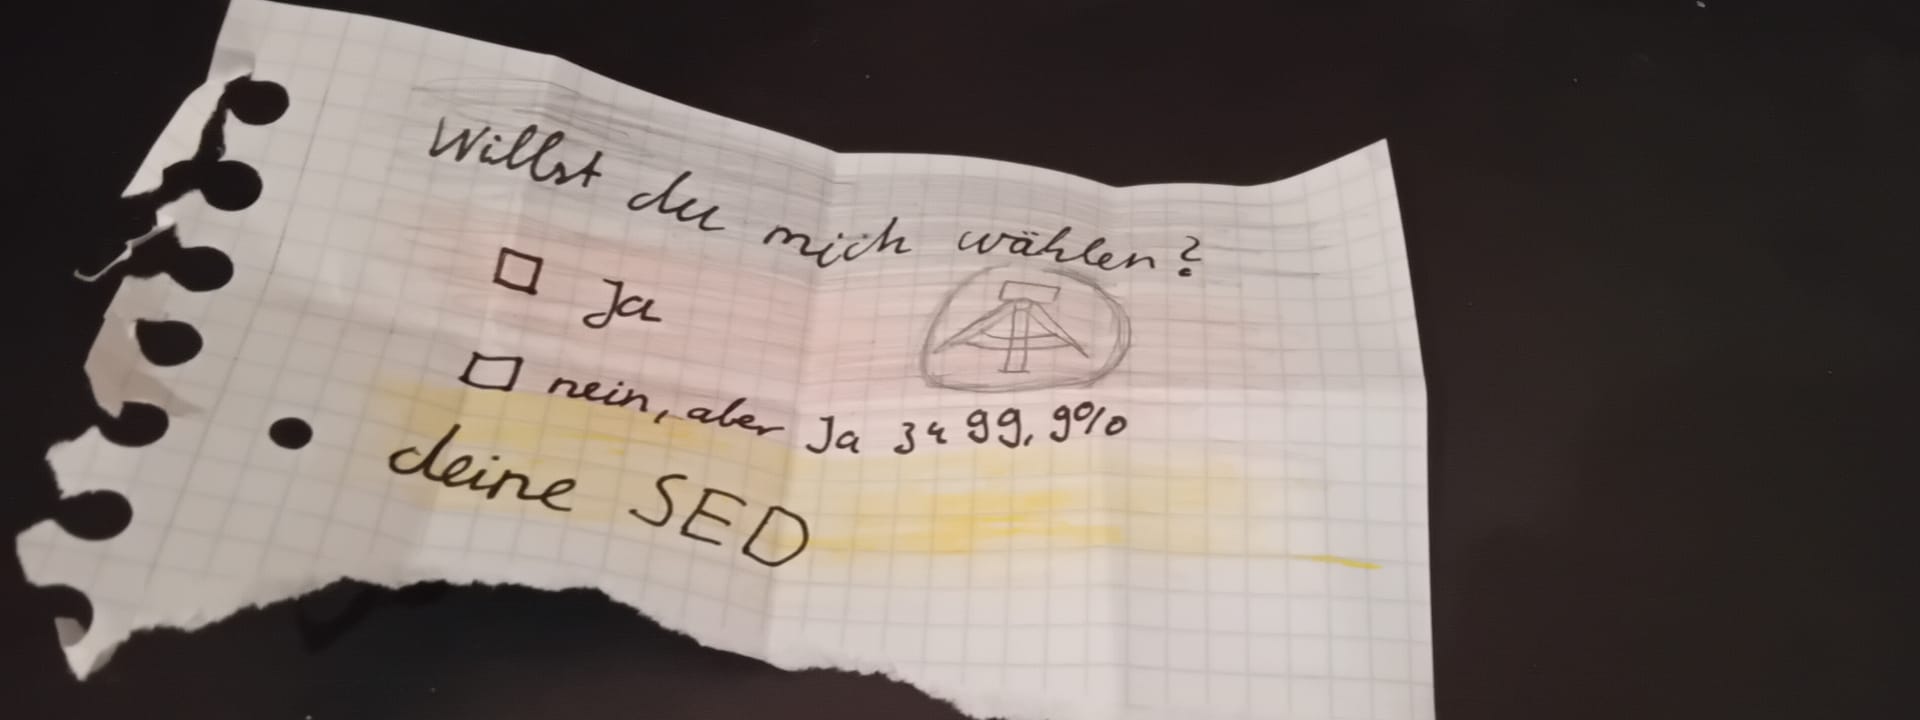 Willst du mich wählen?
☐ Ja
☐ nein, aber Ja zu 99,9%
deine SED